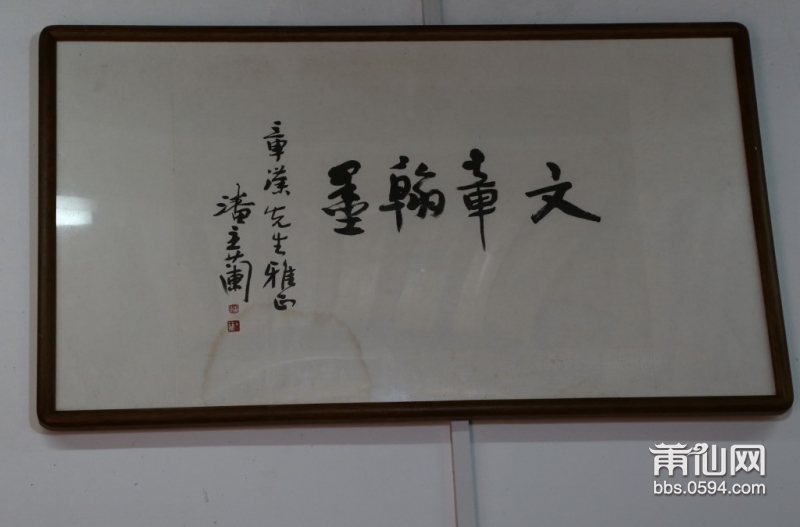 文章翰墨
章漢先生雅正
潘主蘭
莆仙网
bbs.0594.com